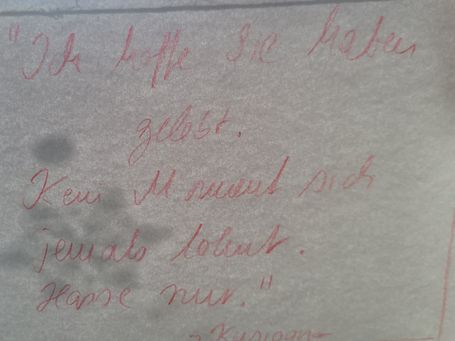 "Ich hoffe Sie haben
gelebt.
Kein Moment sich
jemals lohnt.
nur."